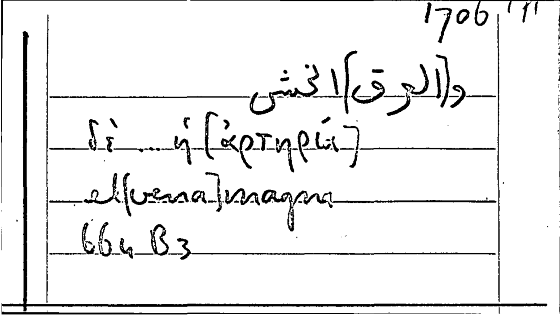 1706
و[العرق]الخشن
δὲ ... ἡ [ἀρτηρία]
et[vena]magna
664 B 3